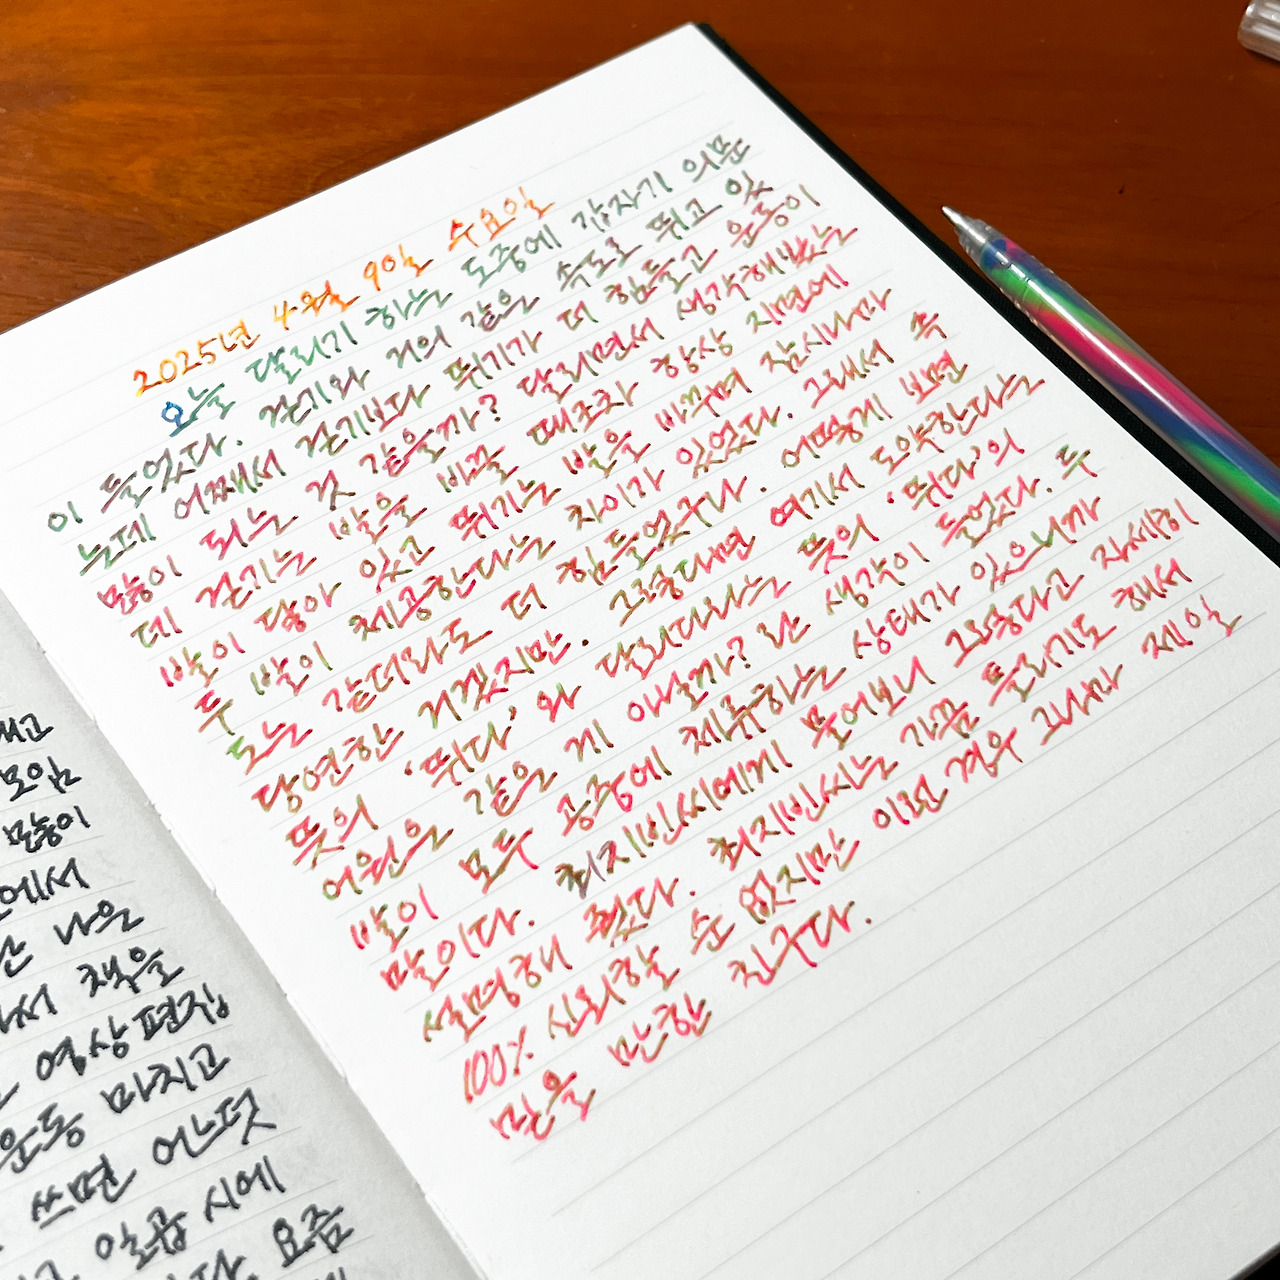 2025년 4월 9일 수요일
오늘 달리기 하는 도중에 갑자기 의문
이 들었다. 걷기와 거의 같은 속도로 뛰고 있
는데 어째서 걷기보다 뛰기가 더 힘들고 운동이
많이 되는 것 같을까? 달리면서 생각해봤는
데 걷기는 발을 바꿀 때조차 항상 지면에
발이 닿아 있고 뛰기는 발을 바꾸며 잠시나마
두 발이 체공한다는 차이가 있었다. 그래서 속
도는 같더라도 더 힘들었구나. 어떻게 보면
당연한 거겠지만. 그렇다면 여기서 도약한다는
뜻의 '뛰다'와 달리다라는 뜻의 '뛰다'의
어원은 같은 게 아닐까? 란 생각이 들었다. 두
발이 모두 공중에 체류하는 상태가 있으니까
말이다. 물어보니 그렇다고 자세히
설명해 줬다. 가끔 틀리기도 해서
100% 신뢰할 순 없지만 이런 경우 그나마 제일
믿을 만한 친구다.
모임
많이
에서
나은
책을
영상 편집
운동 마치고
쓰면 어느덧
일곱 시에
요즘